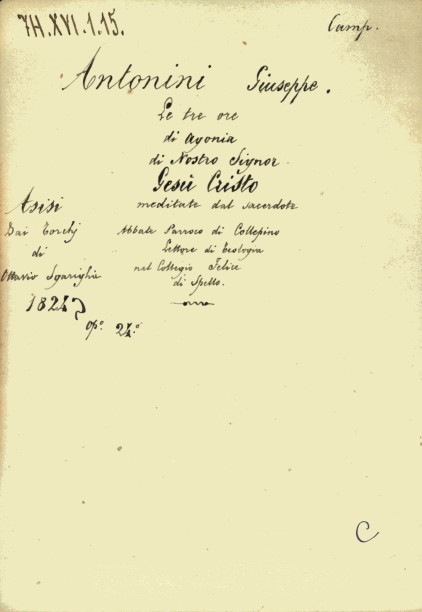 7H.XVI.1.15.
Camp.
Antonini Giuseppe.
Le tre ore
di Agonia
di Nostro Signor
Gesù Cristo
meditate dal sacerdote
Abbate Parroco di Collepino
Lettore di Teologia
nel Collegio Felice
di Spello.
Asisi
Dai Torchj
di
Ottavio Sgariglia
1824
op.° 24.°
C